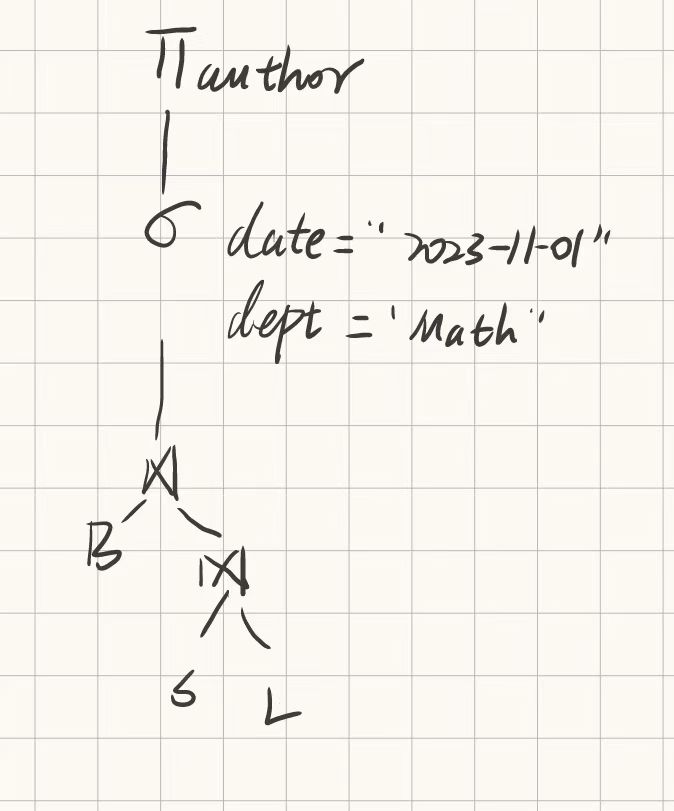 π author
σ date = "2023-11-01"
dept = 'Math"
⋈
B
⋈
S
L